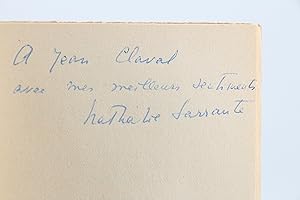 A Jean Claval
avec mes meilleurs sentiments
Nathalie Sarraute